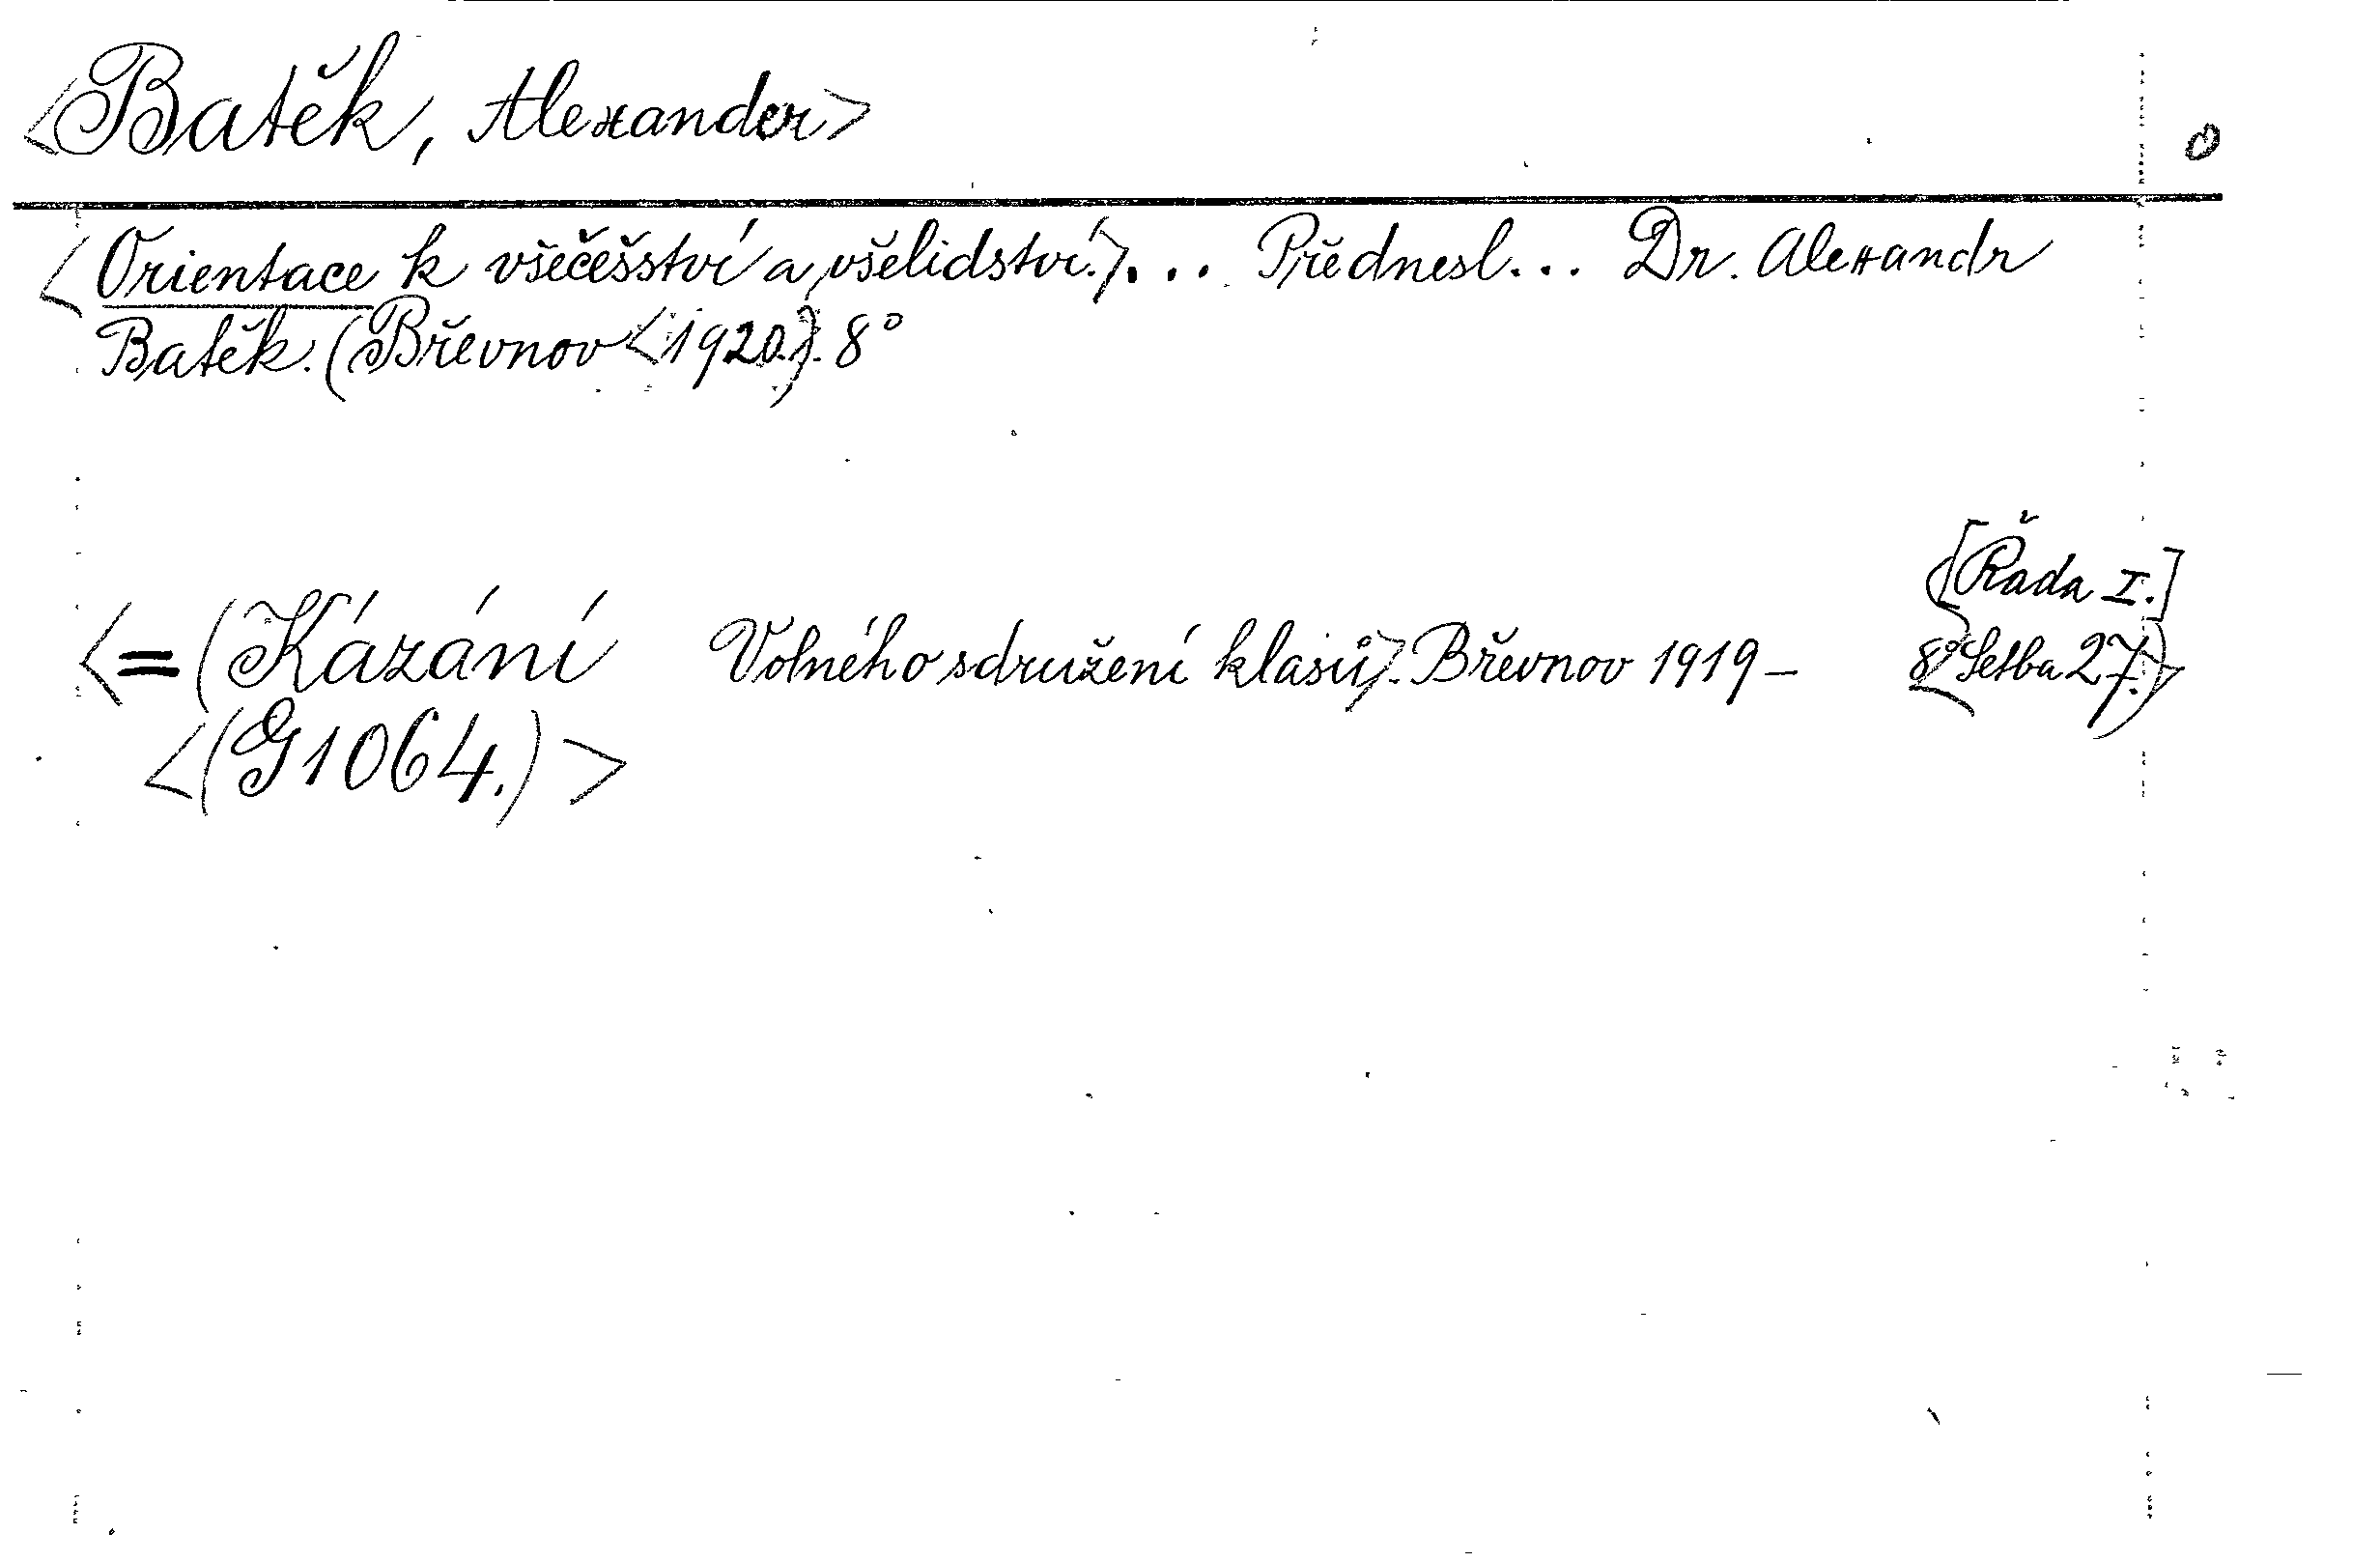 <Batěk, Alexander> 0
<Orientace k všečešství a všelidství.>... Přednesl... Dr. Alexandr
Batěk. (Břevnov <1920.>). 8°
[Řada I.]
<=(Kázání Volného sdružení klasů>. Břevnov 1919 – 8° <Setba 27.)>
<(G1064.)>